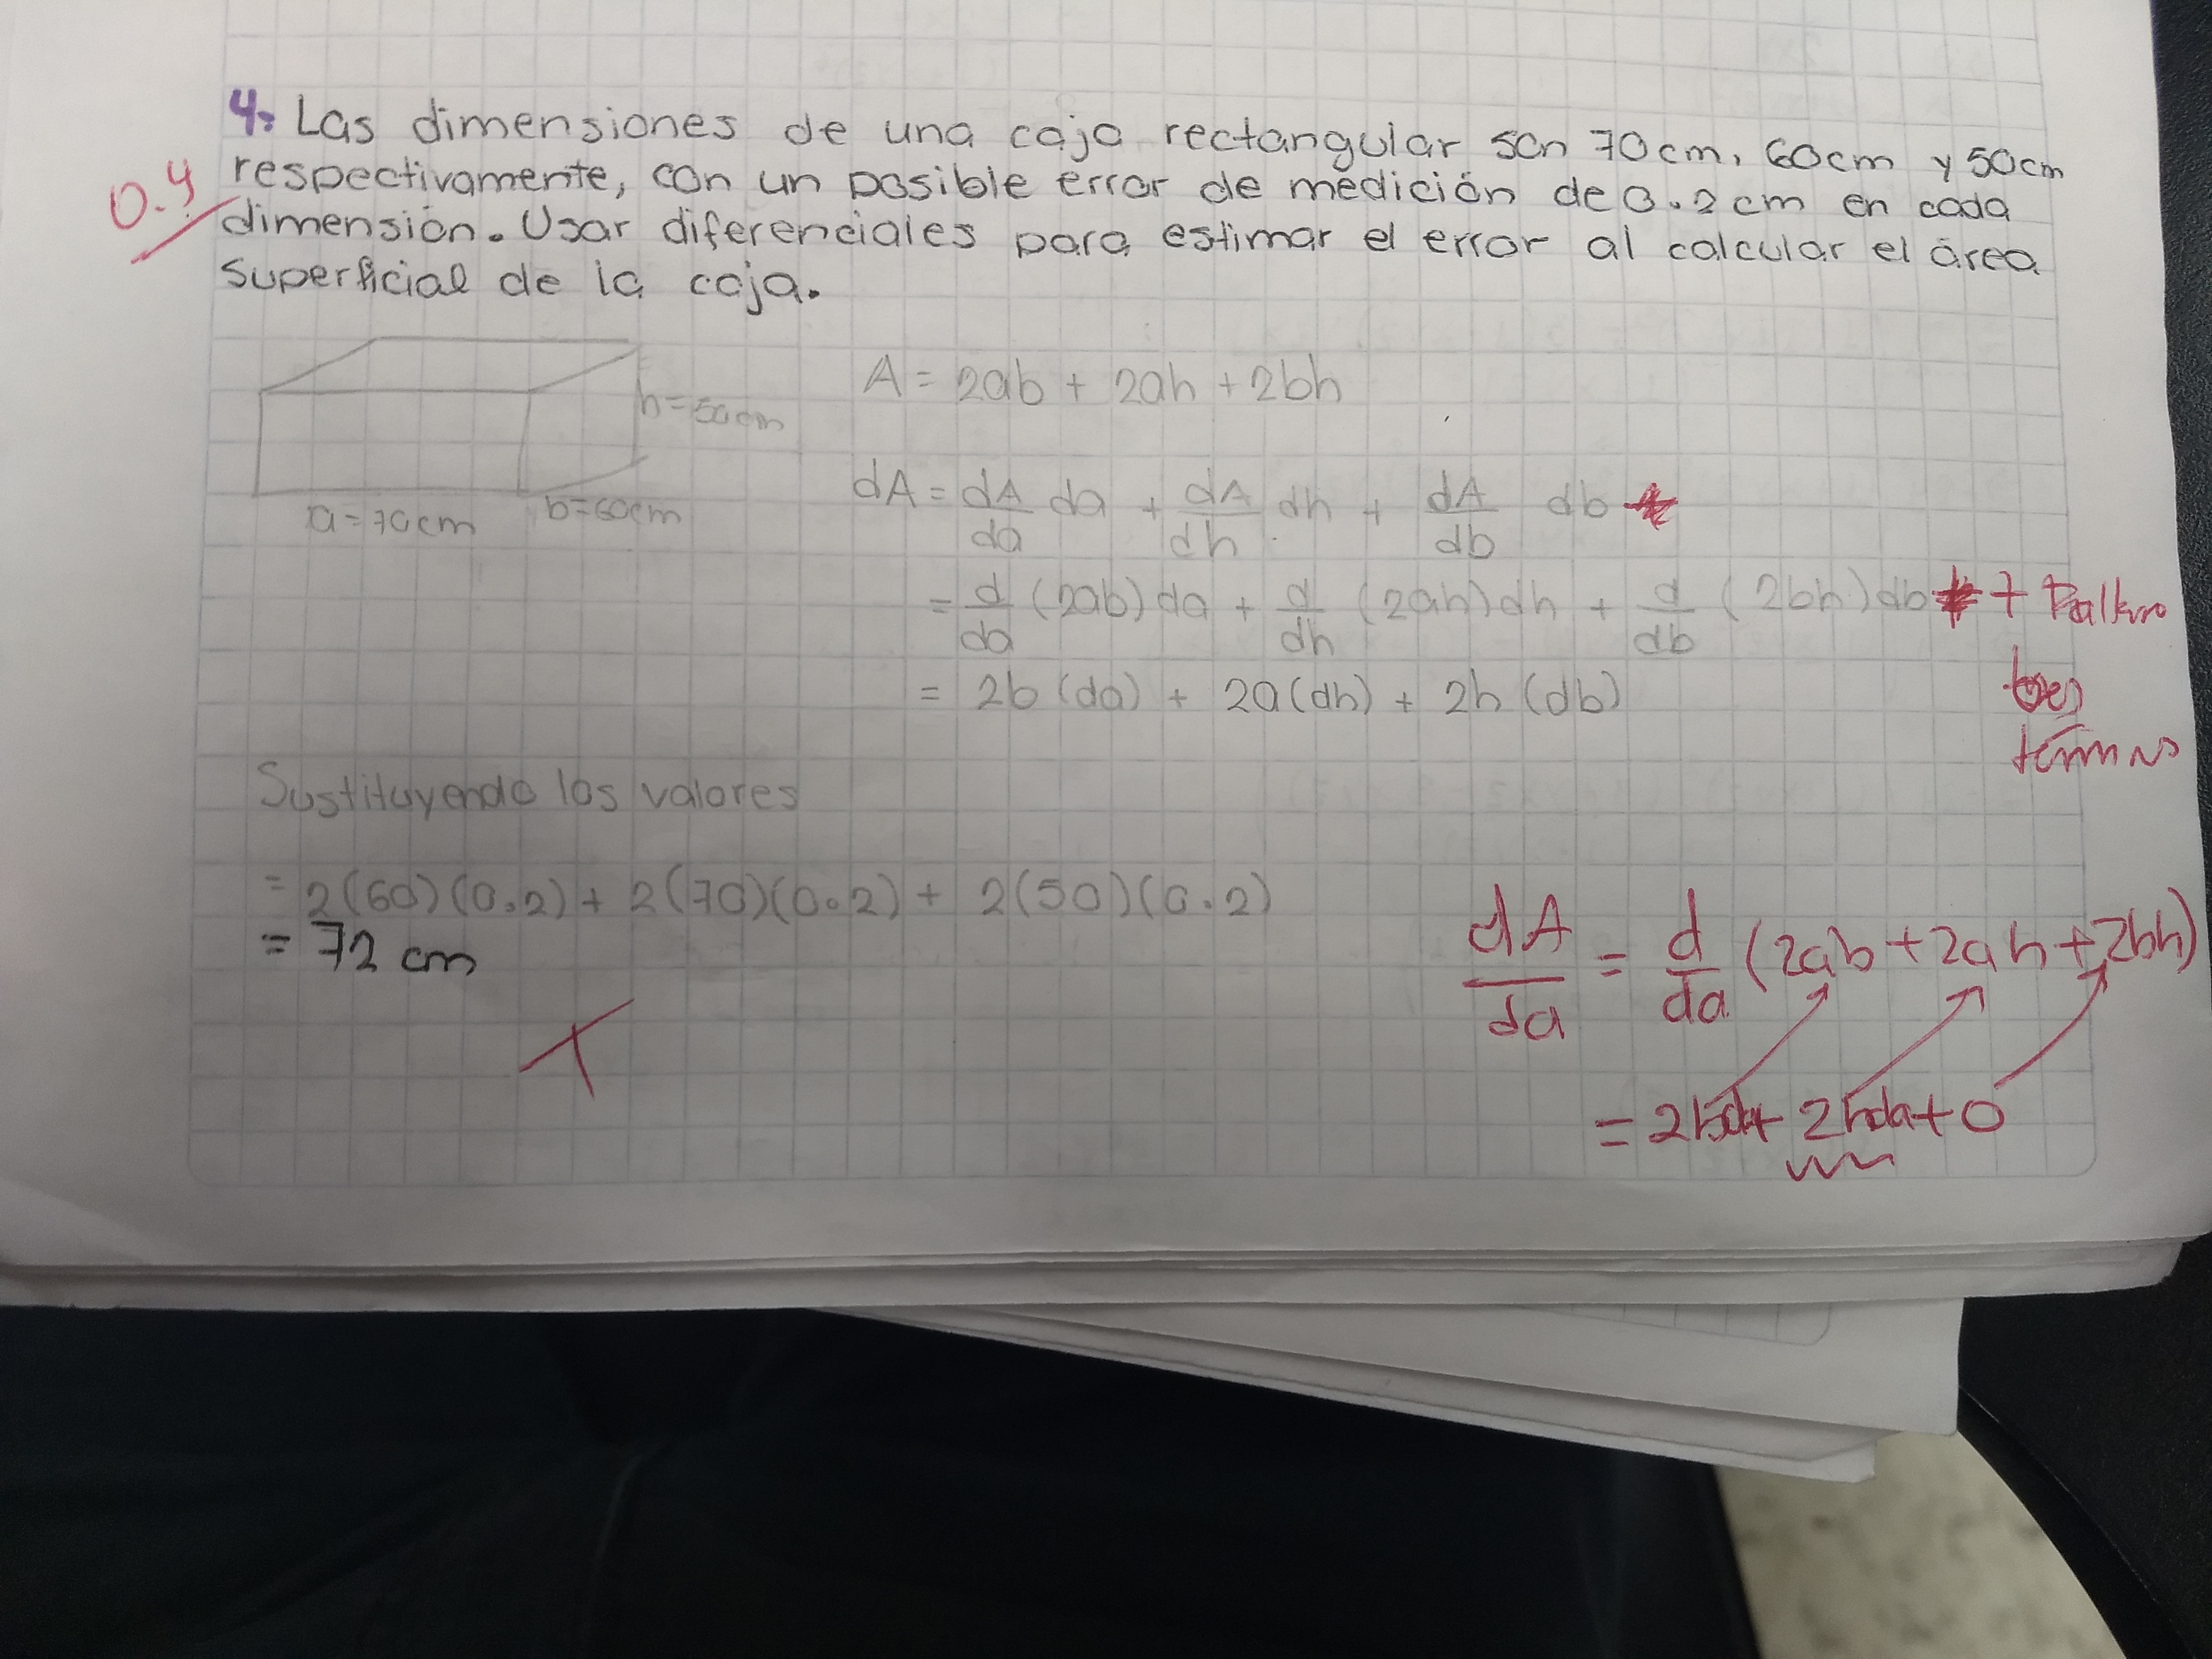 4. Las dimensiones de una caja rectangular son 70cm, 60cm y 50cm
0.4
respectivamente, con un posible error de medición de 0.2cm en cada
dimensión. Usar diferenciales para estimar el error al calcular el área
superficial de la caja.
A = 2ab + 2ah + 2bh
h=50cm
a=70cm b=60cm
dA = dA/da da + dA/dh dh + dA/db db
= d/da (2ab)da + d/dh (2ah)dh + d/db (2bh)db +
tres
= 2b(da) + 2a(dh) + 2h(db)
Sustituyendo los valores
= 2(60)(0.2) + 2(70)(0.2) + 2(50)(0.2)
= 72 cm
dA/da = d/da (2ab+2ah+2bh)
= 2bda + 2hda + 0